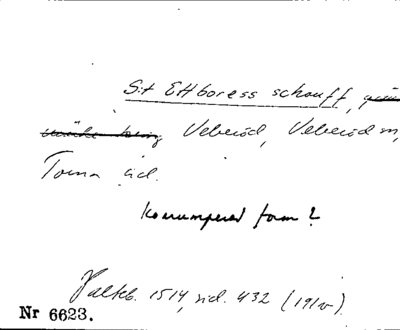 S:t Ettboress schauff,
Veberöd, Veberöd sn,
Torna hd.
Korrumperad form?
1514, sid. 432 (191v).
Nr 6623.